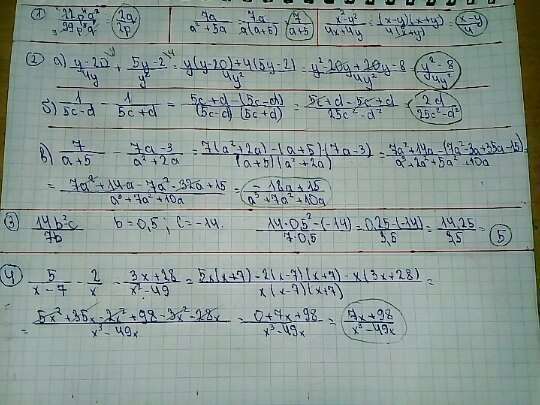 ① 22p⁴q² / 99p⁵q = 2q / 9p   7a / a²+5a = 7a / a(a+5) = 7 / a+5   x²-y² / 4x+4y = (x-y)(x+y) / 4(x+y) = x-y / 4
② а) y-20 / 4y + 5y-2 / y² = y(y-20)+4(5y-2) / 4y² = y²-20y+20y-8 / 4y² = y²-8 / 4y²
б) 1 / 5c-d - 1 / 5c+d = 5c+d-(5c-d) / (5c-d)(5c+d) = 5c+d-5c+d / 25c²-d² = 2d / 25c²-d²
в) 7 / a+5 - 7a-3 / a²+2a = 7(a²+2a)-(a+5)(7a-3) / (a+5)(a²+2a) = 7a²+14a-(7a²-3a+35a-15) / a³+2a²+5a²+10a
= 7a²+14a-7a²-32a+15 / a³+7a²+10a = -18a+15 / a³+7a²+10a
③ 14b²c / 7b   b=0,5; c=-14. 14·0,5²-(-14) / 7·0,5 = 0,25-(-14) / 3,5 = 14,25 / 3,5 = 5
④ 5 / x-7 - 2 / x - 3x+28 / x²-49 = 5x(x+7)-2(x-7)(x+7)-x(3x+28) / x(x-7)(x+7) =
= 5x²+35x-2x²+98-3x²-28x / x³-49x = 0+7x+98 / x³-49x = 7x+98 / x³-49x